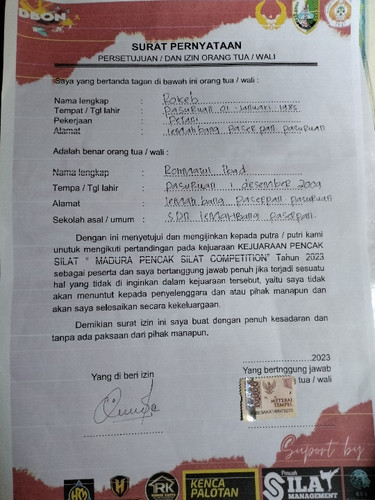 DBON
SURAT PERNYATAAN
PERSETUJUAN / DAN IZIN ORANG TUA / WALI
Saya yang bertanda tagan di bawah ini orang tua / wali :
Nama lengkap : Rokeb
Tempat / Tgl lahir : Pasuruan 01-Januari 1985
Pekerjaan : Petani
Alamat : lemahbang paserpan pasuruan
Adalah benar orang tua / wali :
Nama lengkap : Rohmasul Ibad
Tempa / Tgl lahir : Pasuruan 1 desember 2009
Alamat : lemah bang paserpan pasuruan
Sekolah asal / umum : SDN lemahbang paserpan
Dengan ini menyetujui dan mengijinkan kepada putra / putri kami
unutuk mengikuti pertandingan pada kejuaraan KEJUARAAN PENCAK
SILAT " MADURA PENCAK SILAT COMPETITION" Tahun 2023
sebagai peserta dan saya bertanggung jawab penuh jika terjadi sesuatu
hal yang tidak di inginkan dalam kejuaraan tersebut, yaitu saya tidak
akan menuntut kepada penyelenggara dan atau pihak manapun dan
akan saya selesaikan secara kekeluargaan.
Demikian surat izin ini saya buat dengan penuh kesadaran dan
tanpa ada paksaan dari pihak manapun.
..................,2023
Yang di beri izin
Yang bertnggung jawab
tua / wali
METERAI
TEMPEL
Suport by
RK
KENCA
PALOTAN
Pencak
SILAT
MANAGEMENT